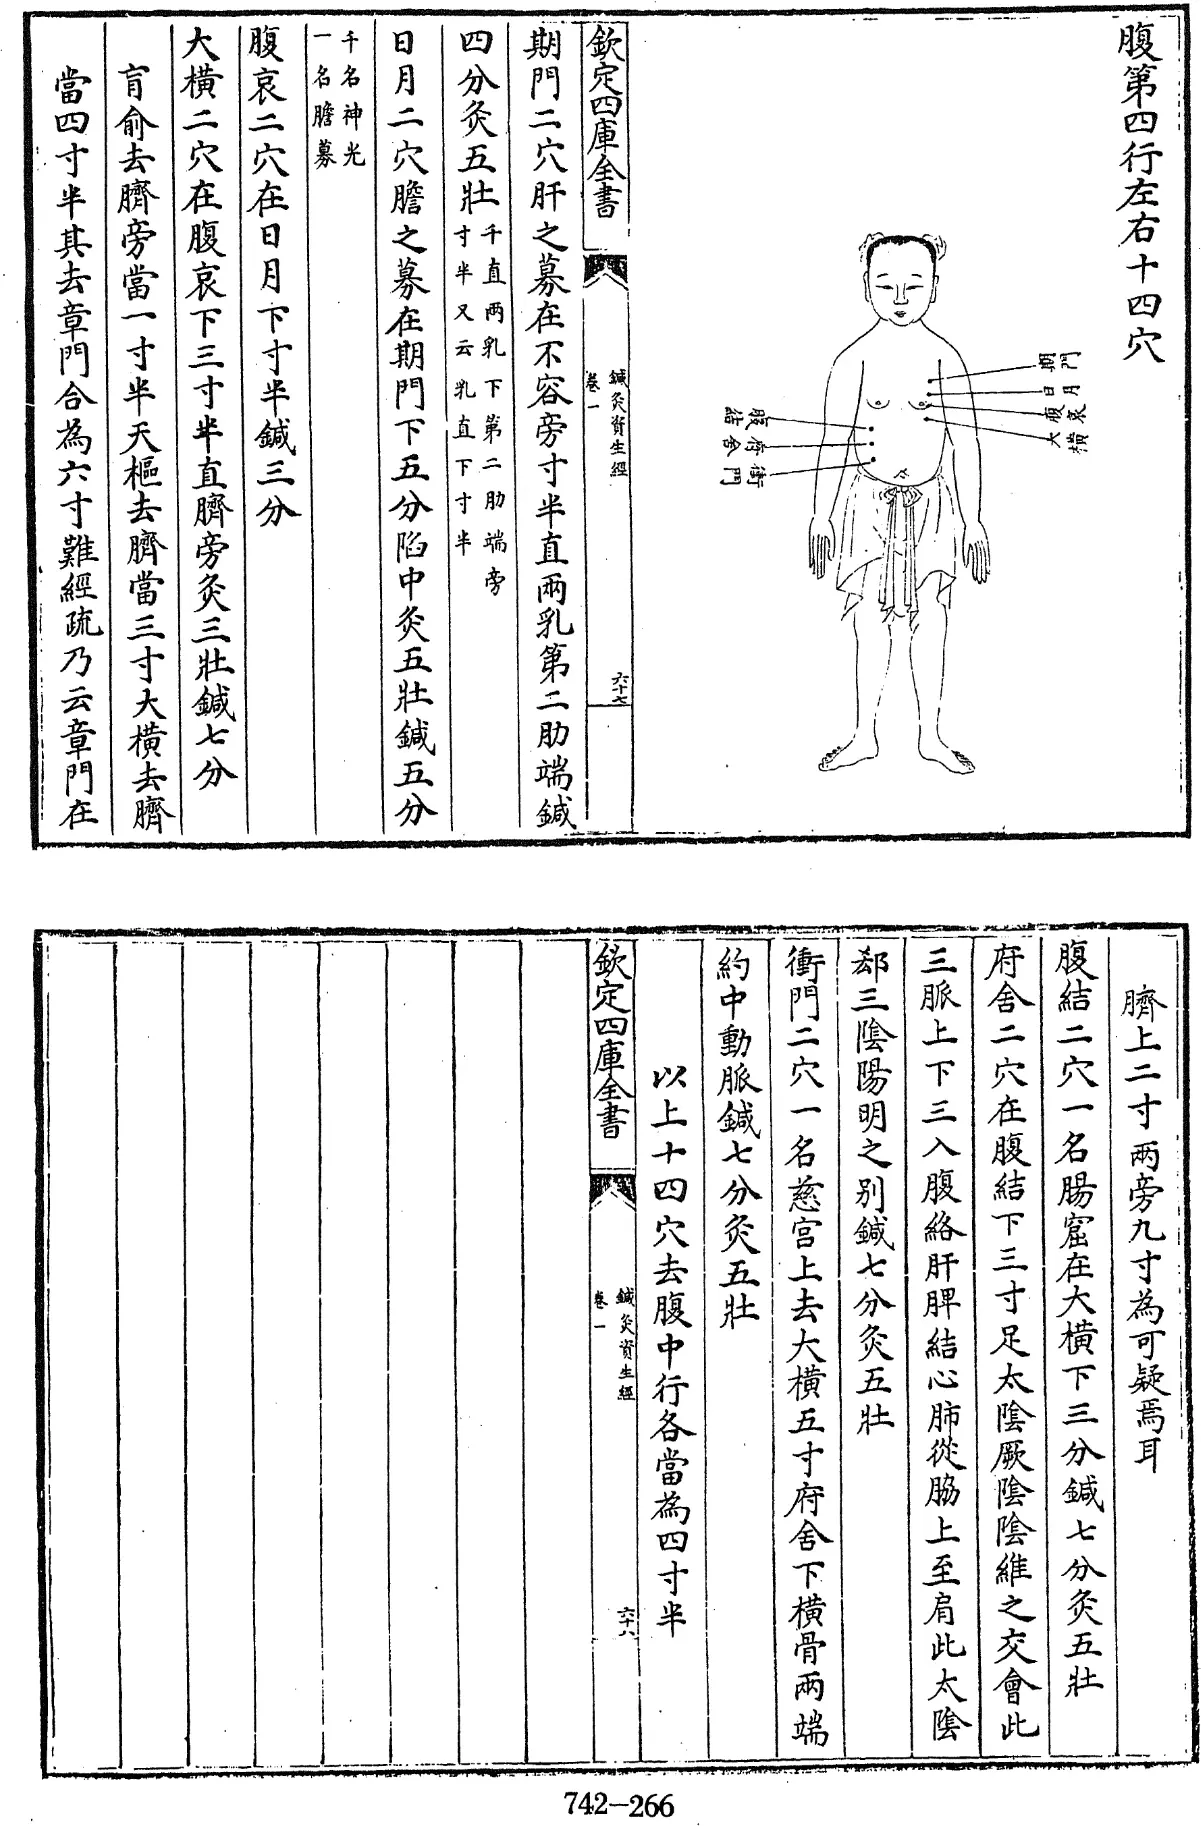 腹第四行左右十四穴
期門
日月
腹哀
大橫
腹結
府舍
衝門
欽定四庫全書
鍼灸資生經
卷一
六十七
期門二穴肝之募在不容旁寸半直兩乳第二肋端鍼
四分灸五壯千直兩乳下第二肋端旁
寸半又云乳直下寸半
日月二穴膽之募在期門下五分陷中灸五壯鍼五分
千名神光
一名膽募
腹哀二穴在日月下寸半鍼三分
大橫二穴在腹哀下三寸半直臍旁灸三壯鍼七分
肓俞去臍旁當一寸半天樞去臍當三寸大橫去臍
當四寸半其去章門合為六寸難經疏乃云章門在
臍上二寸兩旁九寸為可疑焉耳
腹結二穴一名腸窟在大橫下三分鍼七分灸五壯
府舍二穴在腹結下三寸足太陰厥陰陰維之交會此
三脈上下三入腹絡肝脾結心肺從脇上至肩此太陰
郄三陰陽明之别鍼七分灸五壯
衝門二穴一名慈宮上去大橫五寸府舍下橫骨兩端
約中動脈鍼七分灸五壯
以上十四穴去腹中行各當為四寸半
欽定四庫全書
鍼灸資生經
卷一
六十八
742-266